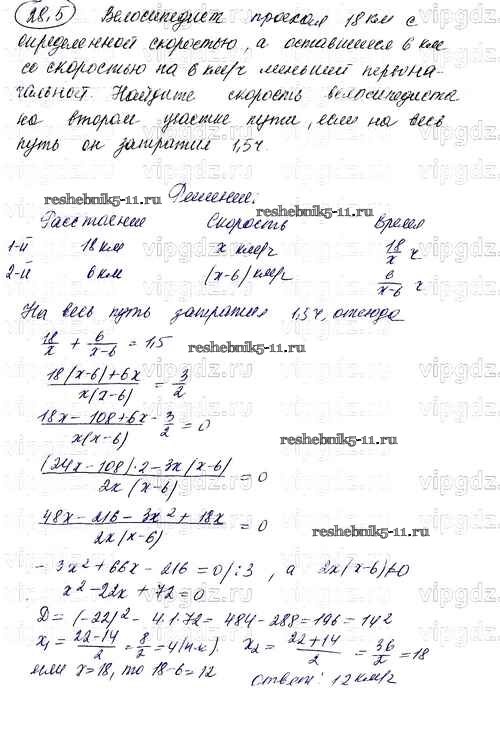 28.5 Велосипедист проехал 18 км с
определенной скоростью, а оставшиеся 6 км
со скоростью на 6 км/ч меньшей первона-
чальной. Найдите скорость велосипедиста
на втором участке пути, если на весь
путь он затратил 1,5 ч.
Решение:
reshebnik5-11.ru
reshebnik5-11.ru
Расстояние Скорость Время
1-й 18 км x км/ч 18/x ч
2-й 6 км (x-6) км/ч 6/(x-6) ч
На весь путь затратил 1,5 ч, отсюда
18/x + 6/(x-6) = 1,5
reshebnik5-11.ru
(18(x-6)+6x)/(x(x-6)) = 3/2
(18x - 108 + 6x)/(x(x-6)) - 3/2 = 0
reshebnik5-11.ru
((24x - 108)·2 - 3x(x-6))/(2x(x-6)) = 0
(48x - 216 - 3x² + 18x)/(2x(x-6)) = 0
reshebnik5-11.ru
- 3x² + 66x - 216 = 0 /:3, а 2x(x-6)≠0
x² - 22x + 72 = 0
D = (-22)² - 4·1·72 = 484 - 288 = 196 = 14²
x₁ = (22-14)/2 = 8/2 = 4 (п.к.). x₂ = (22+14)/2 = 36/2 = 18
или x = 18, то 18-6 = 12 Ответ: 12 км/ч